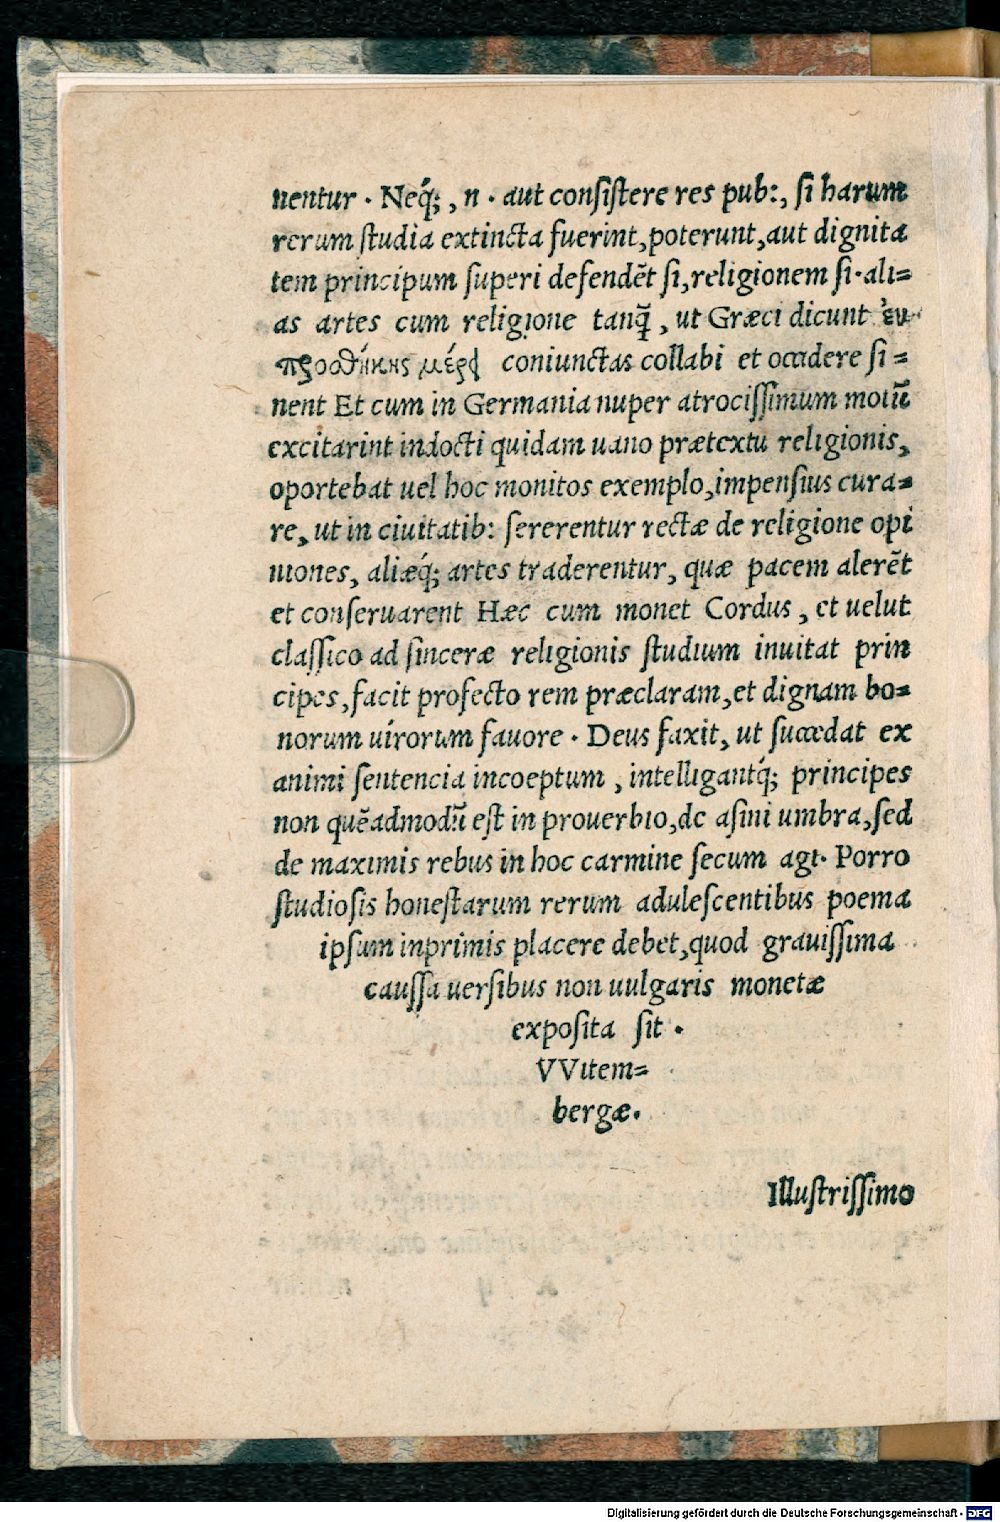 nentur · Neq́;, n · aut conſiſtere res pub:, ſi harum
rerum ſtudia extincta fuerint, poterunt, aut dignita
tem principum ſuperi defendẽt ſi, religionem ſi · ali=
as artes cum religione tanq̃, ut Græci dicunt ἐν
προσθήκης μέρει coniunctas collabi et occidere ſi=
nent Et cum in Germania nuper atrociſſimum motũ
excitarint indocti quidam uano prætextu religionis,
oportebat uel hoc monitos exemplo, impenſius cura=
re, ut in ciuitatib: ſererentur rectæ de religione opi
niones, aliæq́; artes traderentur, quæ pacem alerẽt
et conſeruarent Hæc cum monet Cordus, et uelut
claſſico ad ſinceræ religionis ſtudium inuitat prin
cipes, facit profecto rem præclaram, et dignam bo=
norum uirorum fauore · Deus faxit, ut ſuccedat ex
animi ſentencia incoeptum, intelligantq́; principes
non quẽadmodũ eſt in prouerbio, de aſini umbra, ſed
de maximis rebus in hoc carmine ſecum agi · Porro
ſtudioſis honeſtarum rerum aduleſcentibus poema
ipſum inprimis placere debet, quod grauiſſima
cauſſa uerſibus non uulgaris monetæ
expoſita ſit ·
VVitem=
bergæ.
Illuſtriſſimo
Digitalisierung gefördert durch die Deutsche Forschungsgemeinschaft - DFG